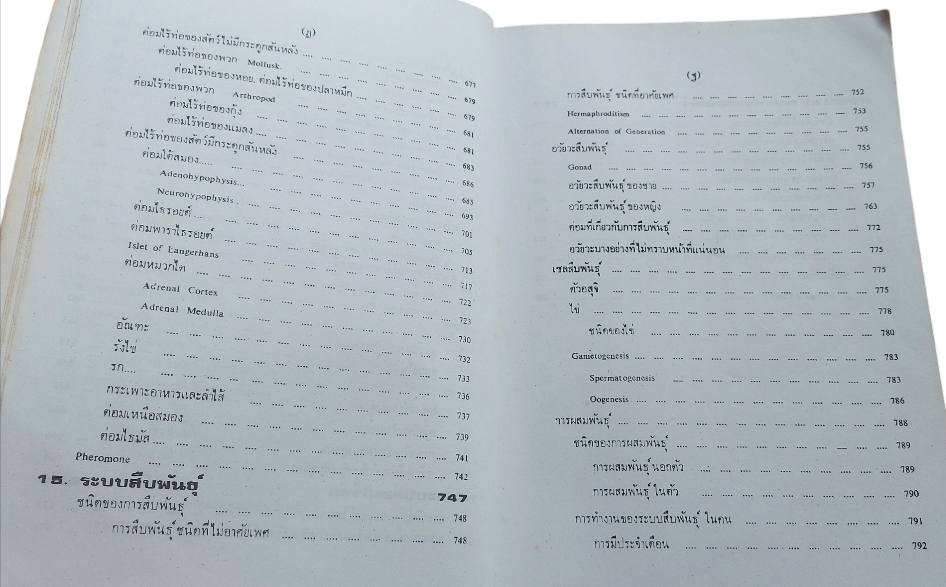 (ฏ)
ต่อมไร้ท่อของสัตว์ไม่มีกระดูกสันหลัง .... 677
ต่อมไร้ท่อของพวก Mollusk. 679
ต่อมไร้ท่อของหอย, ต่อมไร้ท่อของปลาหมึก .... 679
ต่อมไร้ท่อของพวก Arthropod 681
ต่อมไร้ท่อของกุ้ง 681
ต่อมไร้ท่อของแมลง 683
ต่อมไร้ท่อของสัตว์มีกระดูกสันหลัง 686
ต่อมใต้สมอง..... 685
Adenohypophysis... 693
Neurohypophysis . 701
ต่อมไธรอยด์ .... 705
ต่อมพาราไธรอยด์ 713
Islet of Langerhans 717
ต่อมหมวกไต 722
Adrenal Cortex 723
Adrenal Medulla 730
อัณฑะ 732
รังไข่ 733
รก.... 736
กระเพาะอาหารและลำไส้ 737
ต่อมเหนือสมอง 739
ต่อมไธมัส .... 741
Pheromone 742
15. ระบบสืบพันธุ์ 747
ชนิดของการสืบพันธุ์ 748
การสืบพันธุ์ ชนิดที่ไม่อาศัยเพศ 748
(ฐ)
การสืบพันธุ์ ชนิดที่อาศัยเพศ 752
Hermaphroditism 753
Alternation of Generation 755
อวัยวะสืบพันธุ์ 755
Gonad 756
อวัยวะสืบพันธุ์ ของชาย 757
อวัยวะสืบพันธุ์ ของหญิง 763
ต่อมที่เกี่ยวกับการสืบพันธุ์ 772
อวัยวะบางอย่างที่ไม่ทราบหน้าที่แน่นอน 775
เซลสืบพันธุ์ 775
ตัวอสุจิ 775
ไข่ 778
ชนิดของไข่ 780
Gametogenesis 783
Spermatogenesis 783
Oogenesis 786
การผสมพันธุ์ 788
ชนิดของการผสมพันธุ์ 789
การผสมพันธุ์ นอกตัว 789
การผสมพันธุ์ ในตัว 790
การทำงานของระบบสืบพันธุ์ ในคน 791
การมีประจำเดือน 792